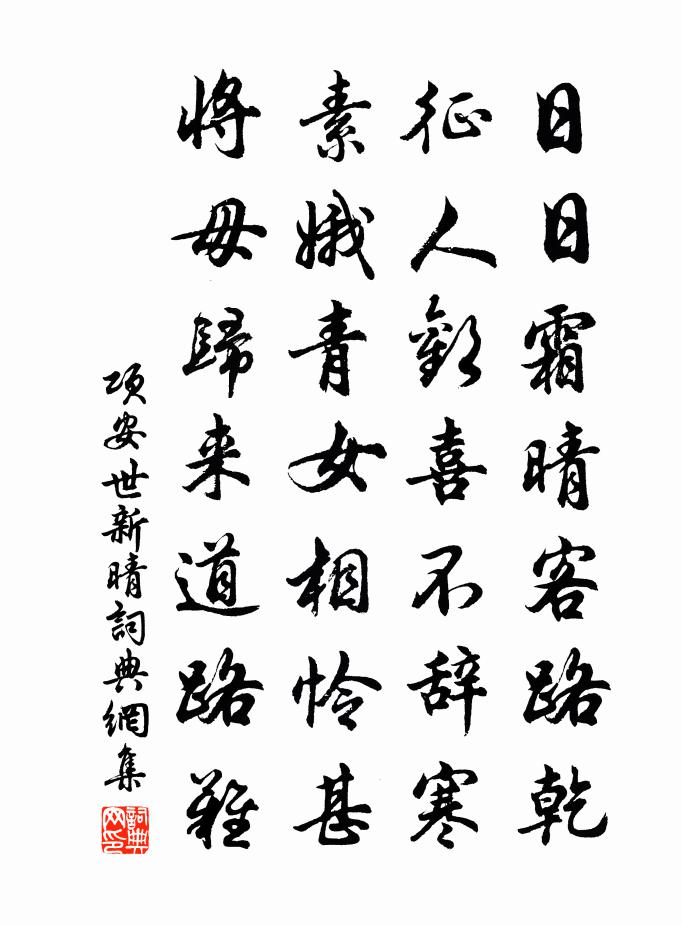 日日霜晴客路乾
征人歡喜不辞寒
素娥青女相怜甚
将母歸来道路難
項安世新晴詞典網集
詞典网印